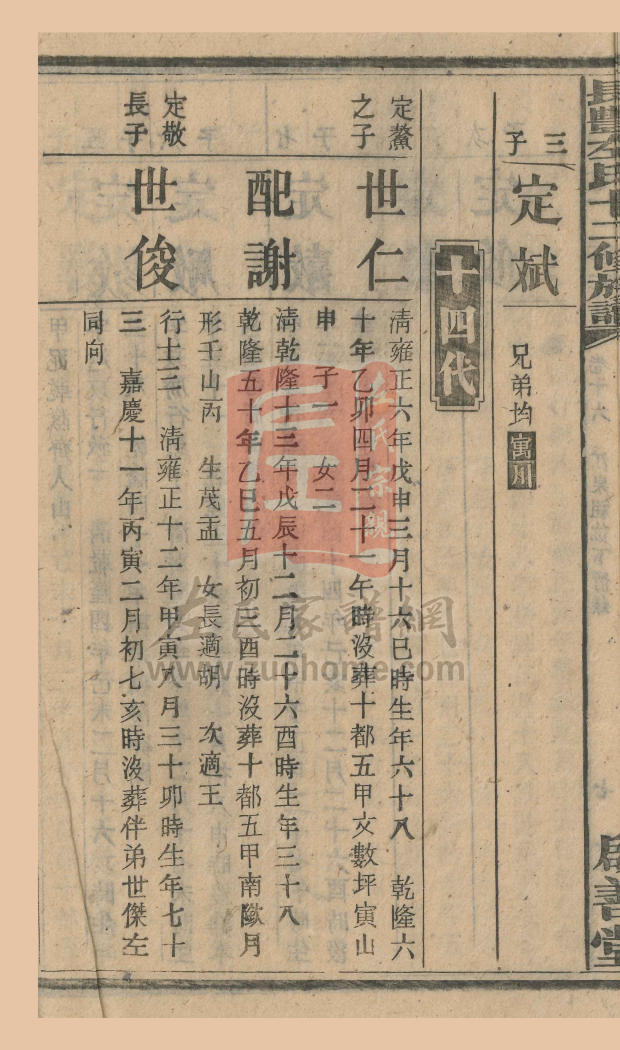 長豐左氏十二修族譜
啟善堂
三子
定斌
兄弟均寓川
十四代
定鰲之子
世仁
清雍正六年戊申三月十六巳時生年六十八 乾隆六
十年乙卯四月二十一午時沒葬十都五甲文數坪寅山
申 子一 女二
配謝
清乾隆十三年戊辰十二月二十六酉時生年三十八
乾隆五十年乙巳五月初三酉時沒葬十都五甲南陂月
形壬山丙 生茂盂 女長適胡 次適王
定敬長子
世俊
行士三 清雍正十二年甲寅八月三十卯時生年七十
三 嘉慶十一年丙寅二月初七亥時沒葬伴弟世傑左
同向
左氏宗親
左氏家譜網
www.zuohome.com